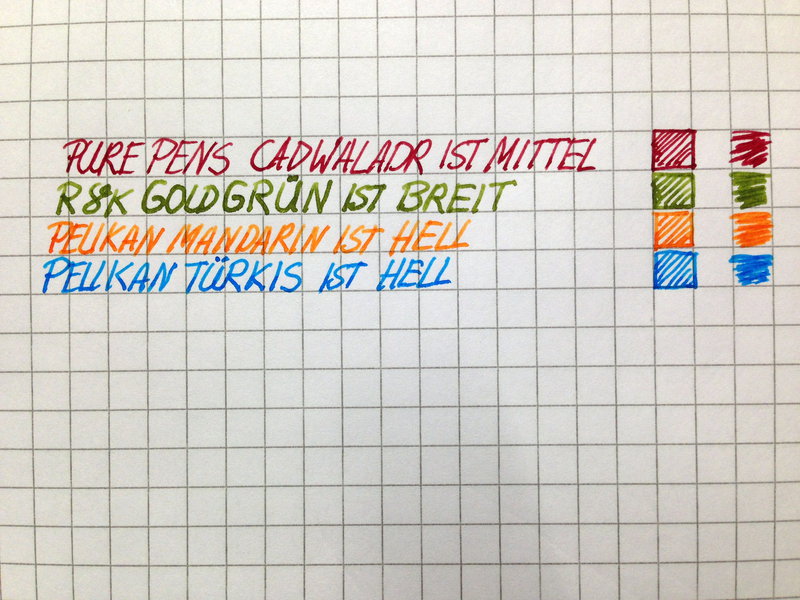 PURE PENS CADWALADR IST MITTEL
R&K GOLDGRÜN IST BREIT
PELIKAN MANDARIN IST HELL
PELIKAN TÜRKIS IST HELL